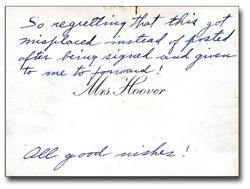 So regretting that this got
misplaced instead of posted
after being signed and given
to me to forward!
Mrs. Hoover
All good wishes!